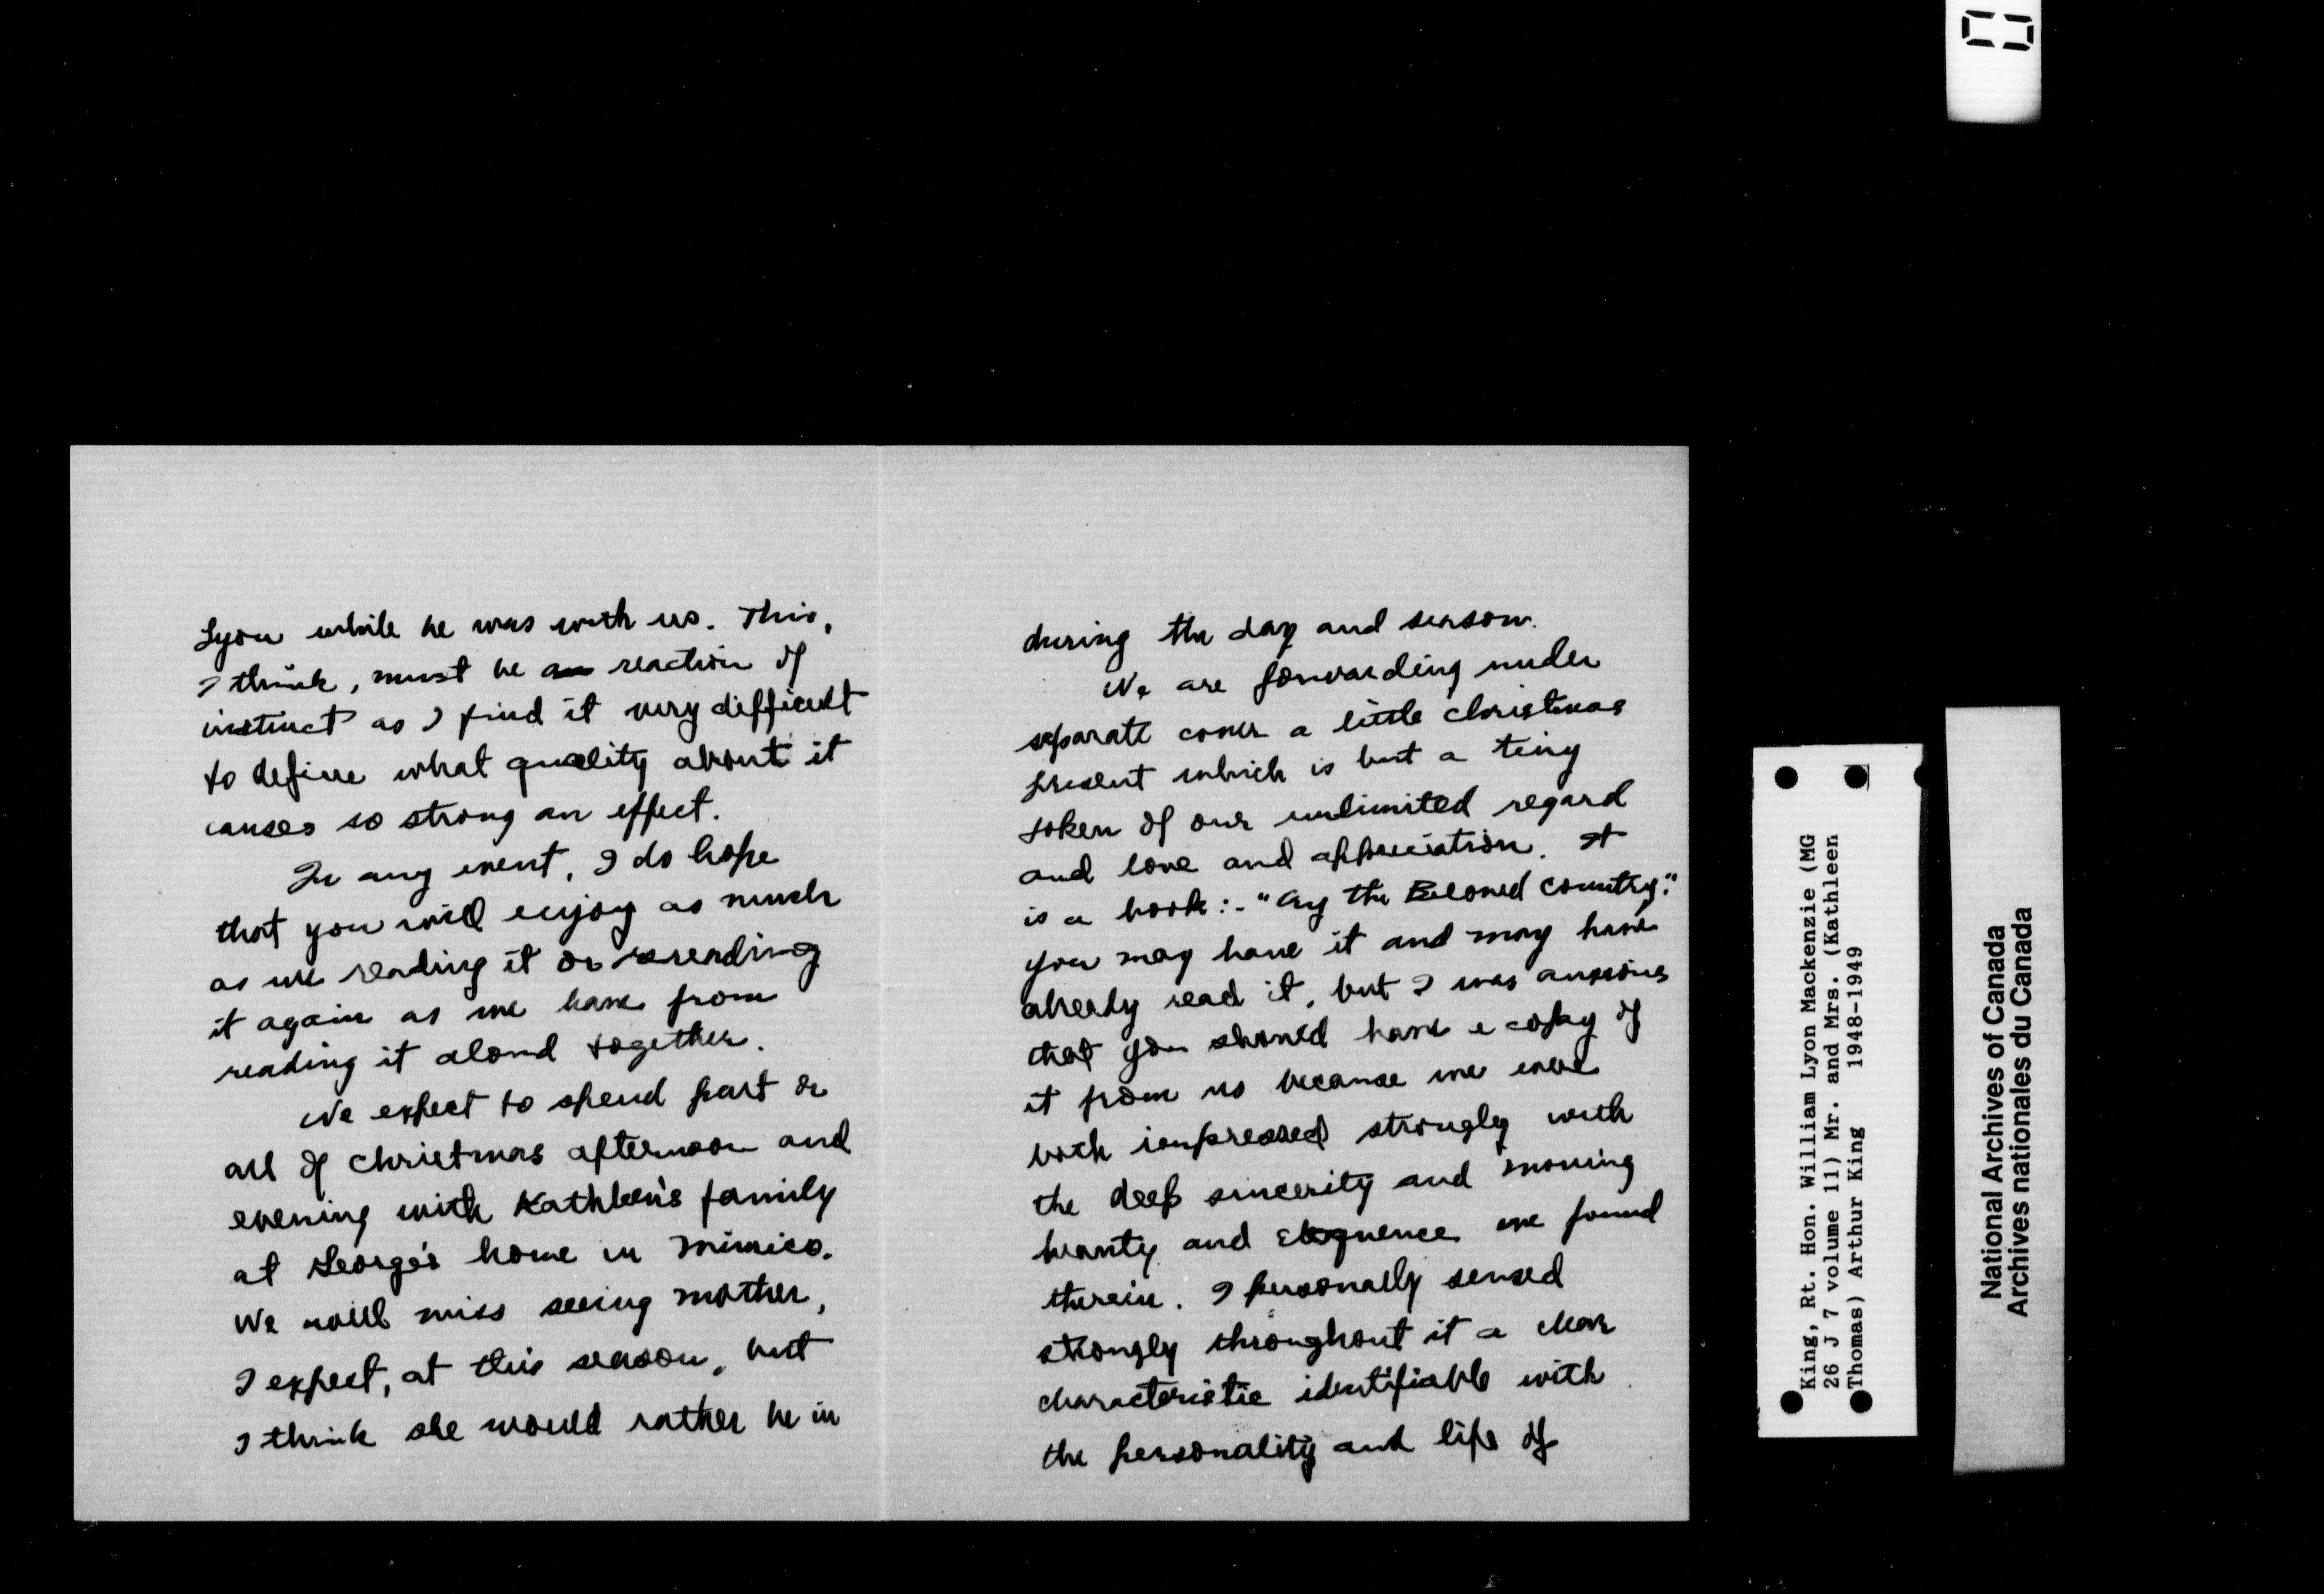 Lyon while he was with us. This,
I think, must be an reaction of
instinct as I find it very difficult
to define what quality about it
causes so strong an effect.
In any event, I do hope
that you will enjoy as much
as we reading it or rereading
it again as we have from
reading it aloud together.
We expect to spend part or
all of Christmas afternoon and
evening with Kathleen's family
at George's home in Mimico.
We will miss seeing mother,
I expect, at this season, but
I think she would rather be in
during the day and season.
We are forwarding under
separate cover a little Christmas
present which is but a tiny
token of our unlimited regard
and love and appreciation. It
is a book:- "Cry the Beloved Country."
You may have it and may have
already read it, but I was anxious
that you should have a copy of
it from us because we were
both impressed strongly with
the deep sincerity and moving
beauty and eloquence we found
therein. I personally sensed
strongly throughout it a clear
characteristic identifiable with
the personality and life of
King, Rt. Hon. William Lyon Mackenzie (MG
26 J 7 volume 11) Mr. and Mrs. (Kathleen
Thomas) Arthur King 1948-1949
National Archives of Canada
Archives nationales du Canada